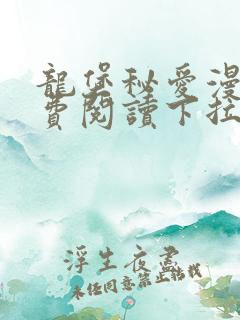 龍堡秘愛漫
費閱讀下拉
浮生夜盡
未经同意禁止转载